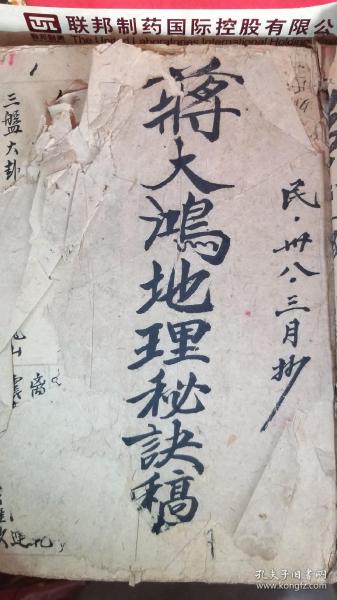 联邦制药国际控股有限公
The United Laboratories International Holdings
蒋大鴻地理秘訣稿
民·卅八·三月抄
三盤大卦
孔夫子旧书网